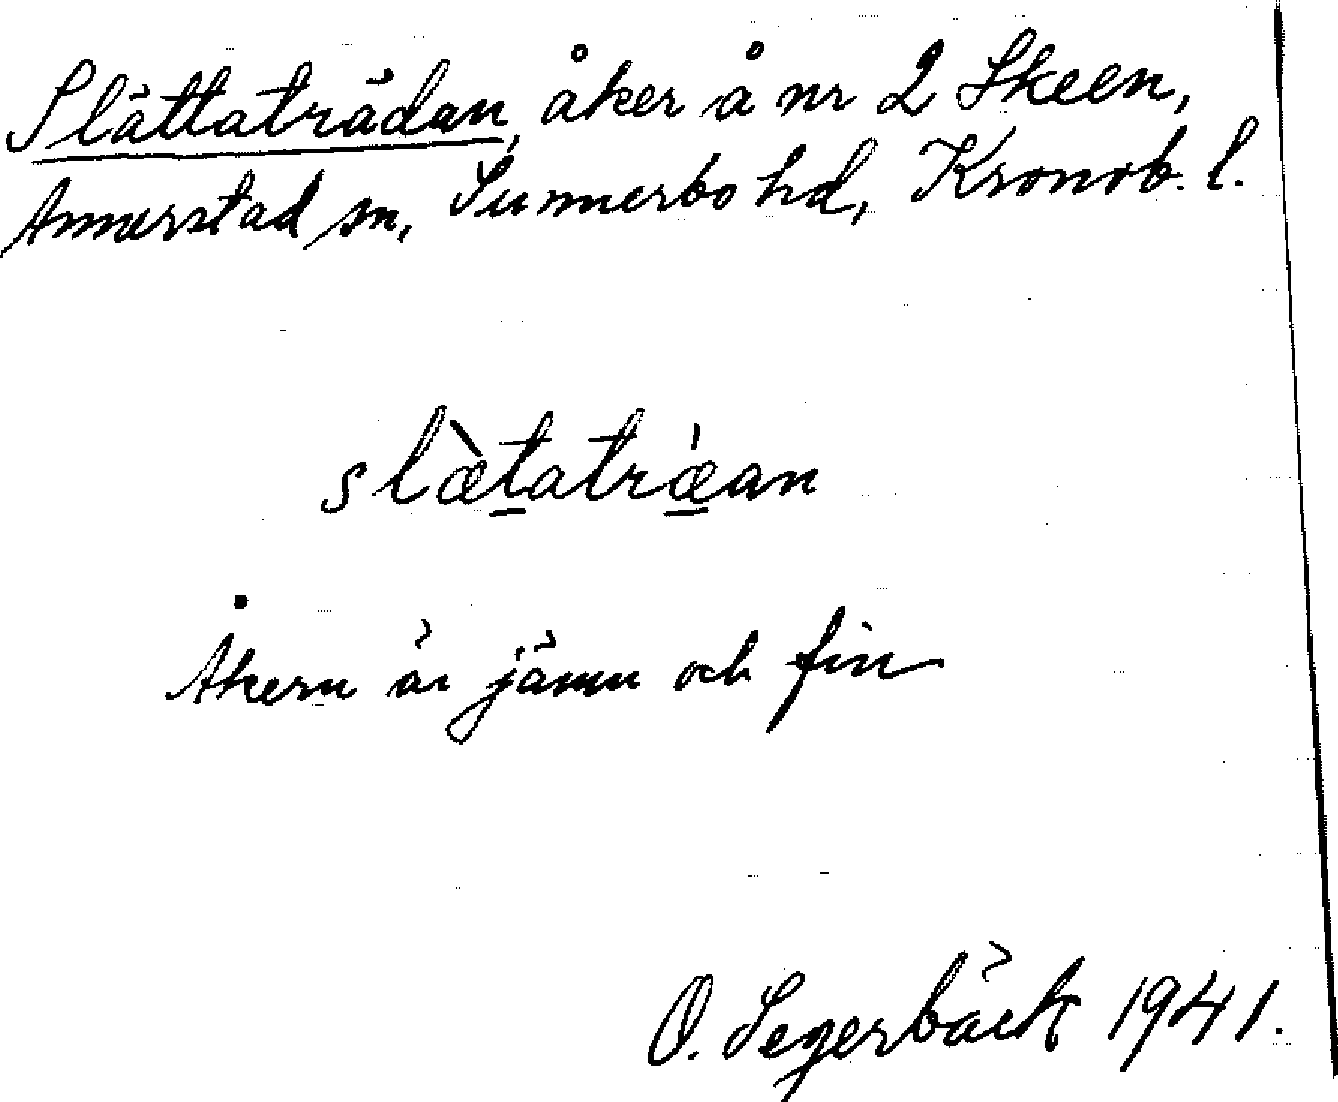 Slättaträdan, åker å nr 2 Skeen,
Annerstad sn, Sunnerbo hd, Kronob. l.
slæ̀tatræ̍an
Åkern är jämn och fin
O. Segerbäck 1941.